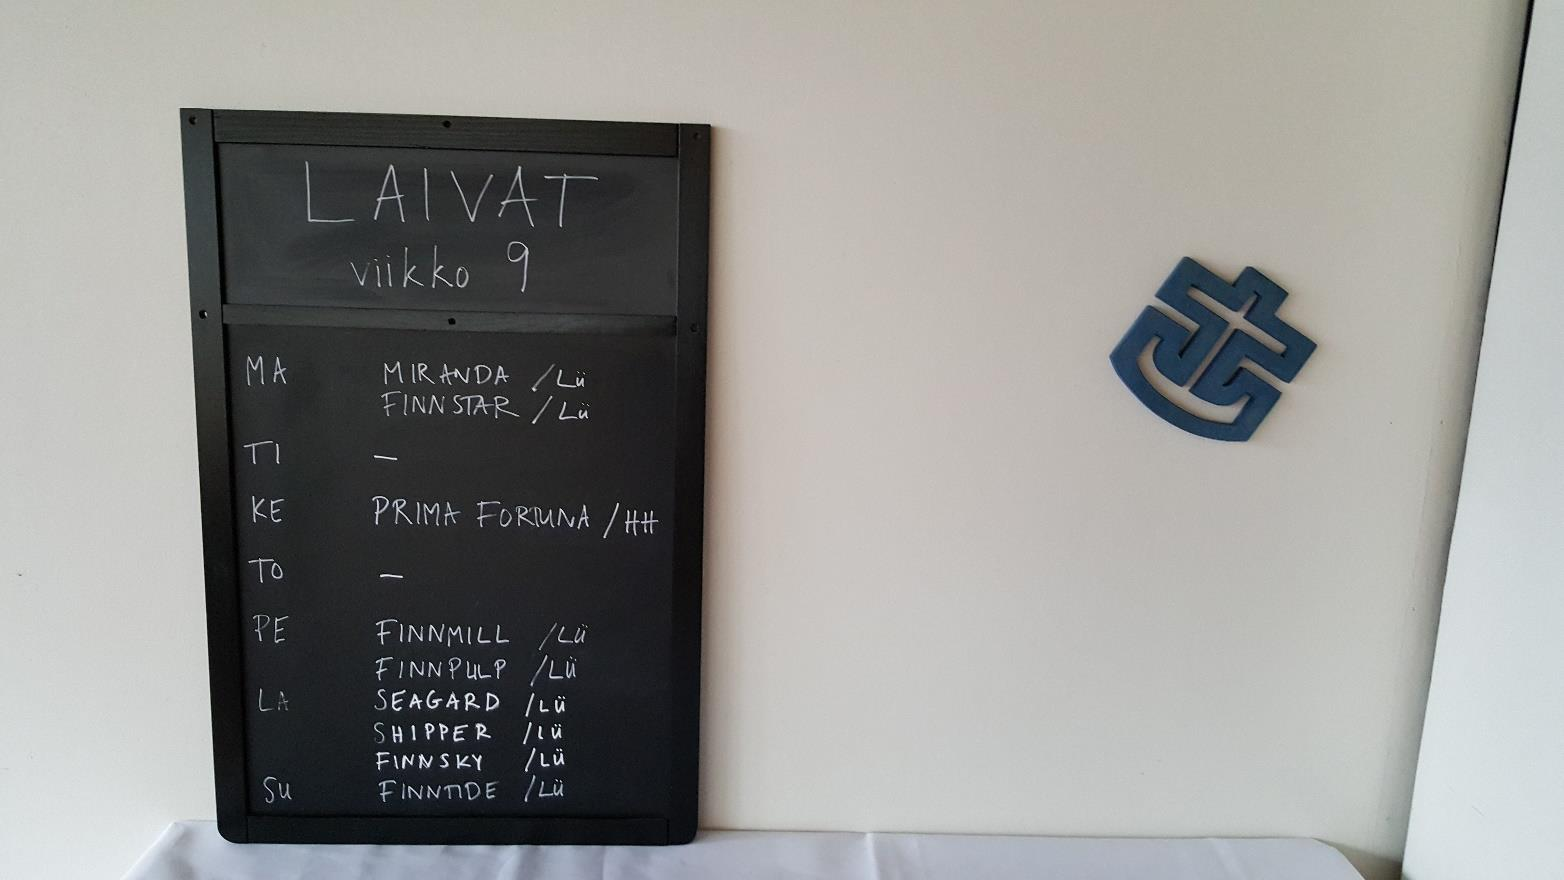 LAIVAT
viikko 9
MA MIRANDA /Lü
FINNSTAR /Lü
TI –
KE PRIMA FORTUNA /HH
TO –
PE FINNMILL /Lü
FINNPULP /Lü
LA SEAGARD /Lü
SHIPPER /Lü
FINNSKY /Lü
SU FINNTIDE /Lü